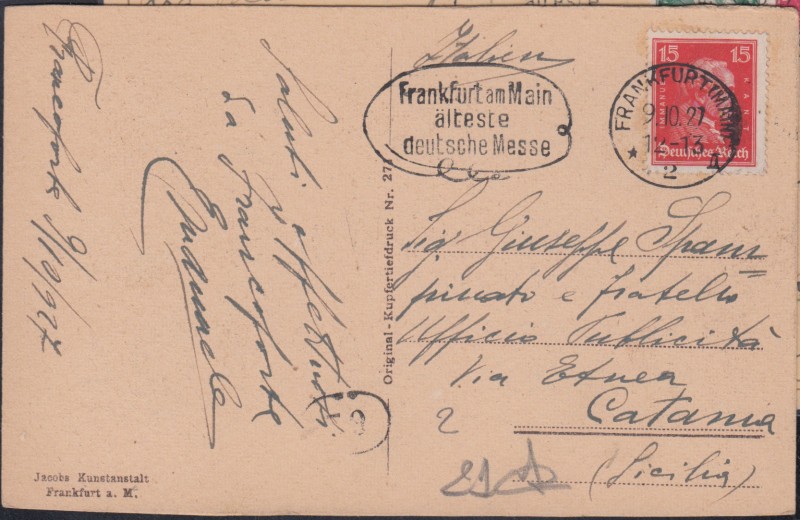 Francoforte 9/10/927
Saluti affettuosi
da Francoforte
Italien
Frankfurt am Main
älteste
deutsche Messe
15 15
IMMANUEL KANT
Deutsches Reich
FRANKFURT (MAIN)
9.10.27
12-13
* 2
Sig Giuseppe Spam=
pinato e fratello
Ufficio Pubblicità
Via Etnea
2
Catania
(Sicilia)
Original-Kupfertiefdruck Nr. 27
Jacobs Kunstanstalt
Frankfurt a. M.